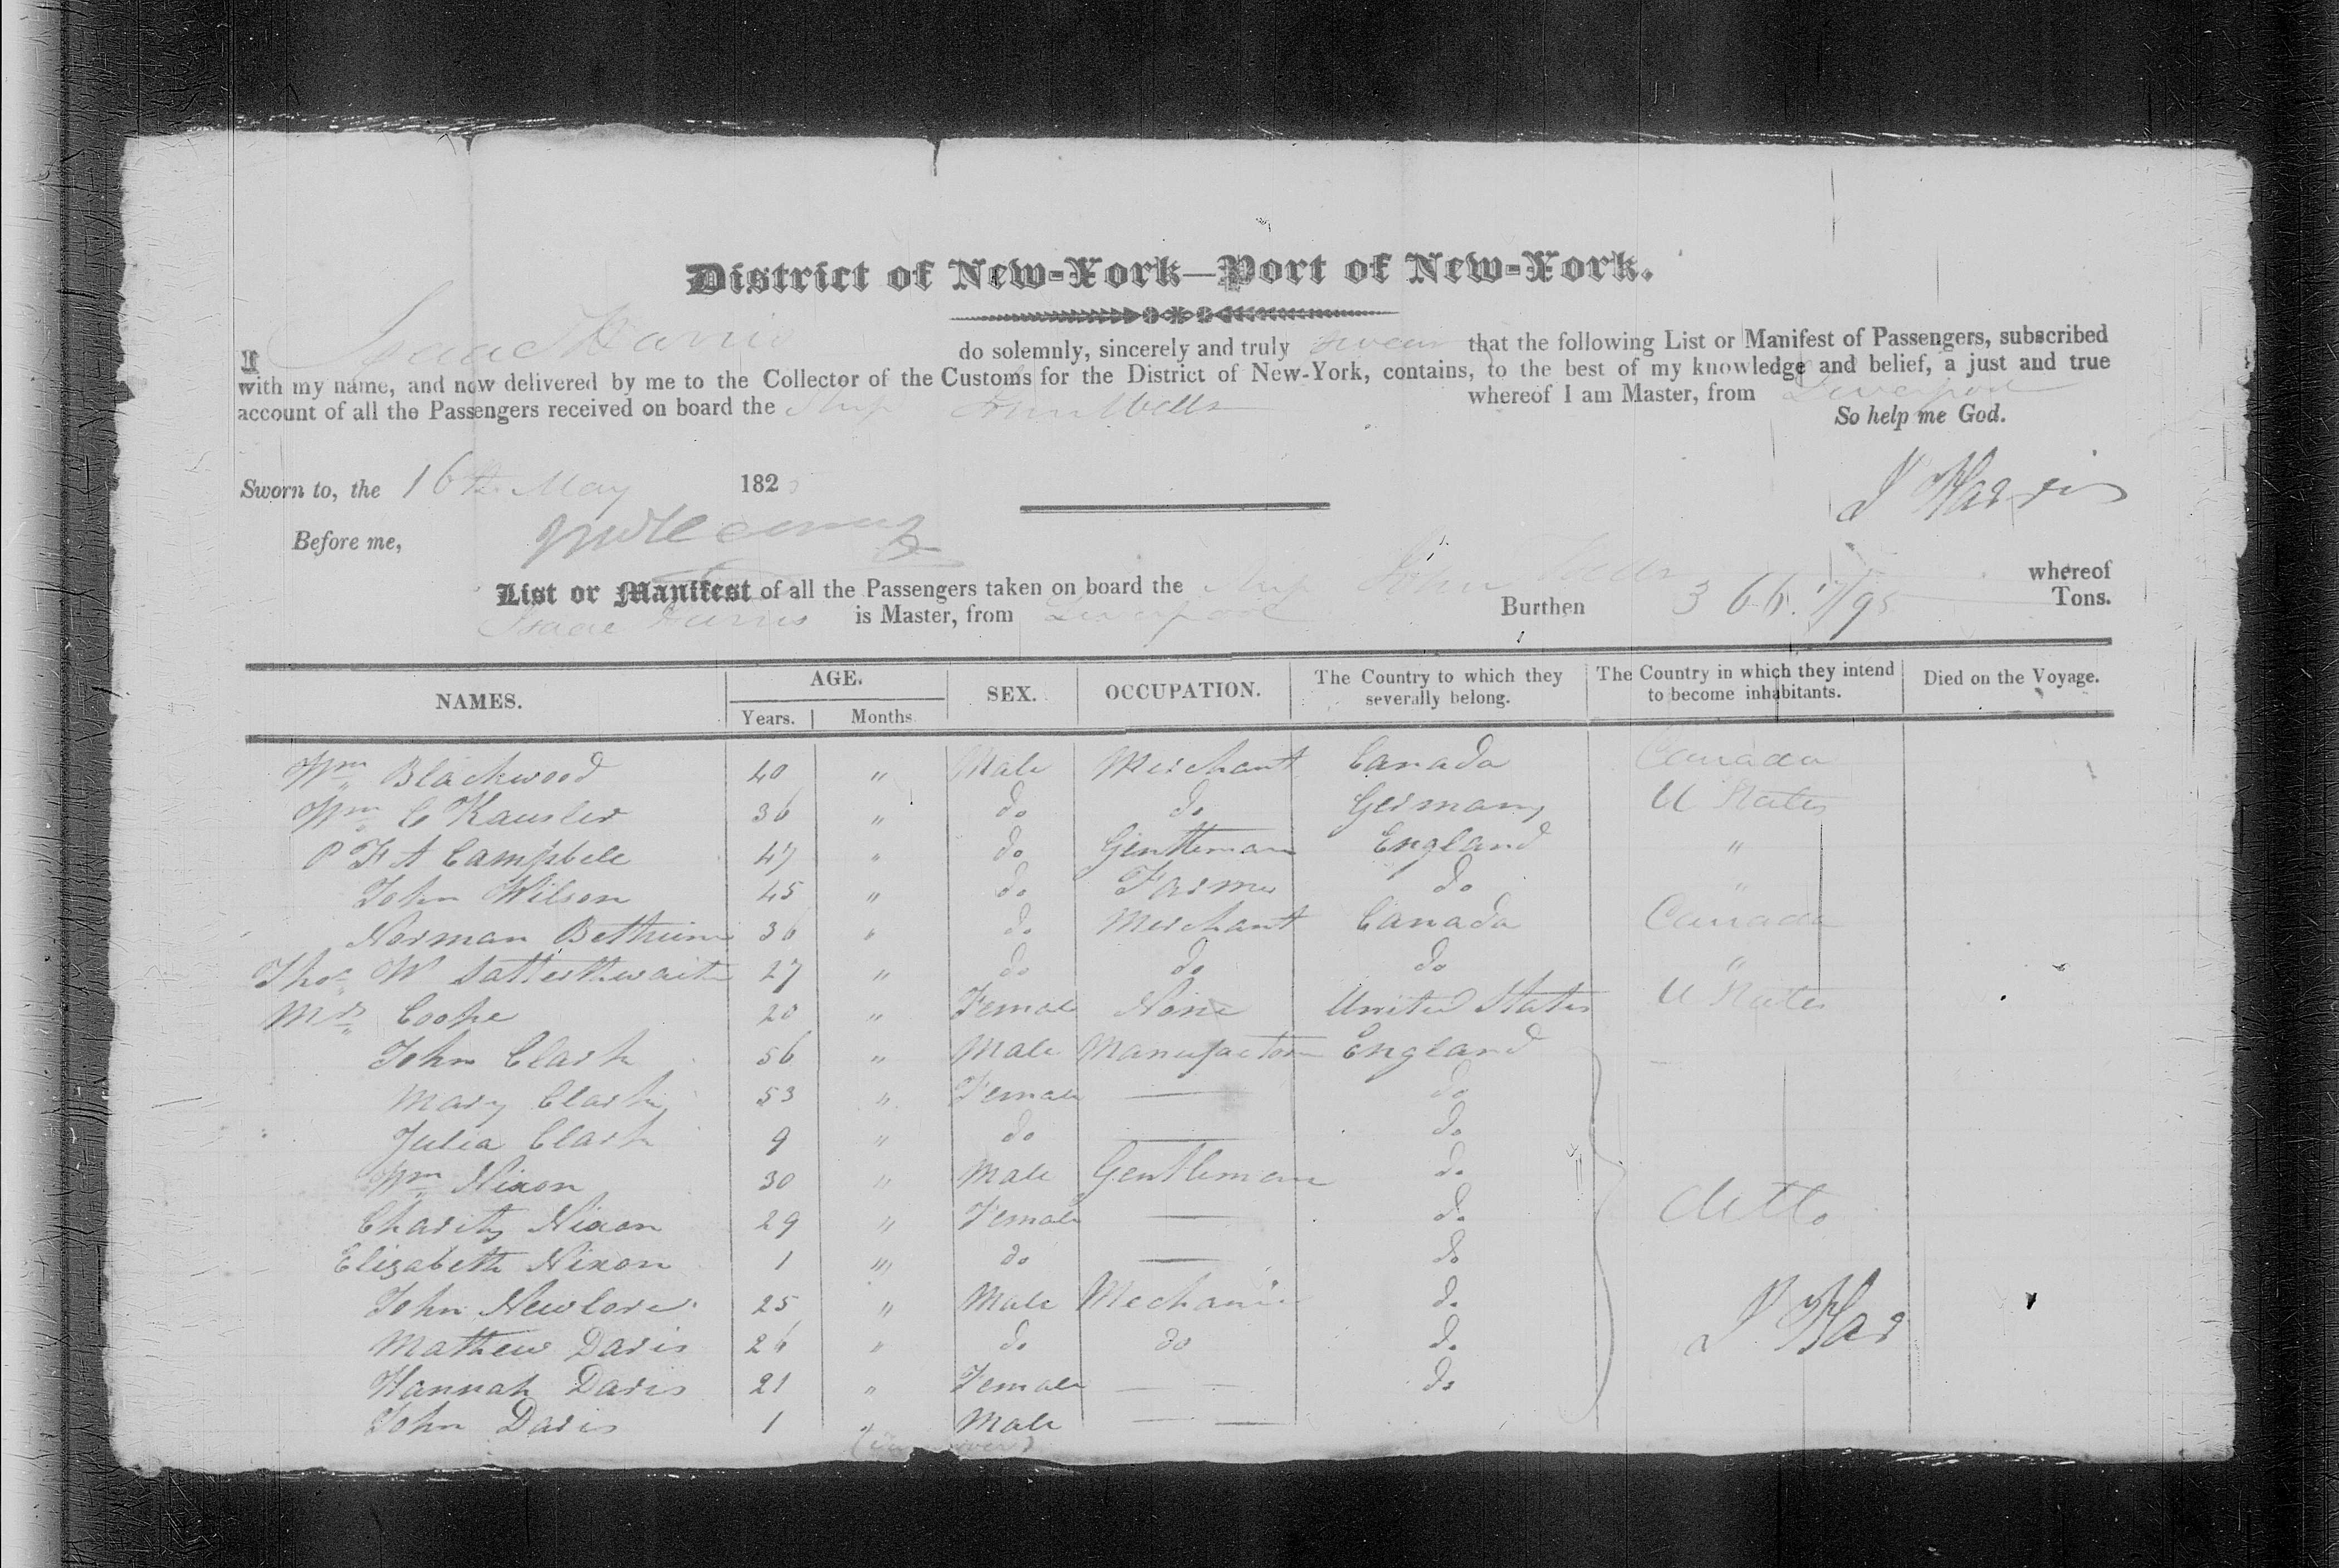 District of New-York—Port of New-York.
I Isaac Harris do solemnly, sincerely and truly swear that the following List or Manifest of Passengers, subscribed
with my name, and now delivered by me to the Collector of the Customs for the District of New-York, contains, to the best of my knowledge and belief, a just and true
account of all the Passengers received on board the Ship John Wells whereof I am Master, from Liverpool
So help me God.
Sworn to, the 16th May 182
I Harris
Before me,
List or Manifest of all the Passengers taken on board the Ship John Wells whereof
Isaac Harris is Master, from Liverpool Burthen 366. /95 Tons.
NAMES. AGE. SEX. OCCUPATION. The Country to which they severally belong. The Country in which they intend to become inhabitants. Died on the Voyage.
Years. Months
Wm Blackwood 40 " Male Merchant Canada Canada
Wm C Kausler 36 " do do Germany U States
P F A Campbell 47 " do Gentleman England "
John Wilson 45 " do Farmer do "
Norman Bethune 36 " do Merchant Canada Canada
Thos W Satterthwaite 27 " do do do "
Mrs Cooke 20 " Female None United States U States
John Clark 56 " Male Manufacturer England
Mary Clark 53 " Female — do
Julia Clark 9 " do — do
Wm Nixon 30 " Male Gentleman do
Charity Nixon 29 " Female — do ditto
Elizabeth Nixon 1 " do — do
John Newlove 25 " Male Mechanic do
Mathew Davis 26 " do do do I Har
Hannah Davis 21 " Female — — do
John Davis 1 " Male — —